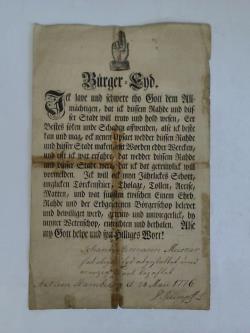 Bürger-Eyd.
Ick lave und schwere tho Gott dem All-
mächtigen, dat ick düssem Rahde und düs-
ser Stadt will truw und hold wesen, Eer
Bestes söken unde Schaden affwenden, alse ick beste
kan und mag, ock nenen Upsaet wedder düssen Rahde
und düsser Stadt maken, mit Worden edder Wercken,
und efft ick wat erfahre, dat wedder düssen Rahde
und düsser Stadt were, dat ick dat getrüwlick will
vormelden. Ick will ock myn Jährlickes Schott,
imglicken Törckenstüer, Tholage, Tollen, Accise,
Matten, und wat sünsten twischen Einem Ehrb.
Rahde und der Erbgesetenen Börgerschop belevet
und bewilliget werd, getrüw- und unwiegerlick, by
myner Wetenschop, entrichten und bethalen. Alse
my Gott helpe und syn Hilliges Wort!
Johann Hermann
1776